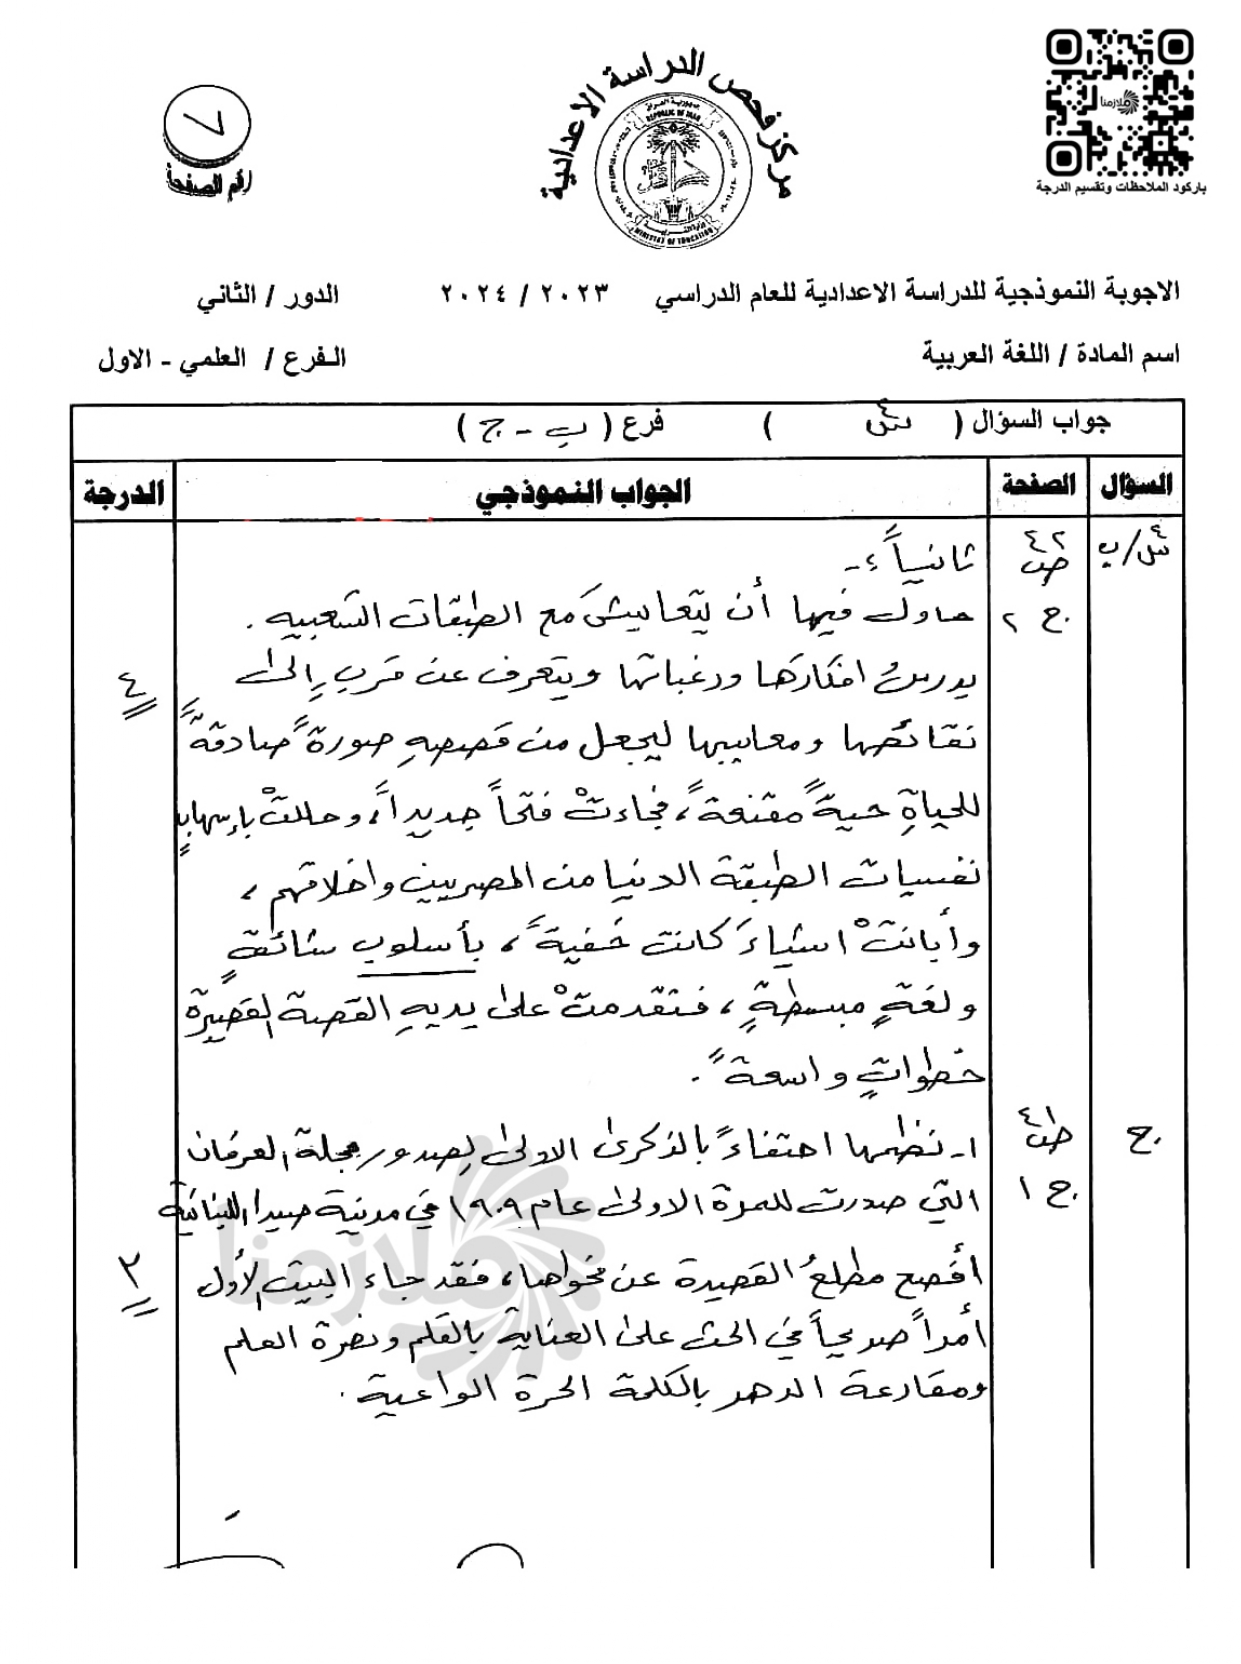 باركود الملاحظات وتقسيم الدرجة
ملازمنا
مركز فحص الدراسة الاعدادية
جمهورية العراق
REPUBLIC OF IRAQ
وزارة التربية
MINISTRY OF EDUCATION
٧
رقم الصفحة
الاجوبة النموذجية للدراسة الاعدادية للعام الدراسي ٢٠٢٣ / ٢٠٢٤ الدور / الثاني
اسم المادة / اللغة العربية الفرع / العلمي - الاول
جواب السؤال ( س٤ ) فرع ( ب - ج )
السؤال الصفحة الجواب النموذجي الدرجة
س٤/ب ص٤٢ ثانياً :-
ج ٢ حاول فيها أن يتعايشَ مع الطبقات الشعبيه .
يدرسُ افكارَها ورغباتها ويتعرف عن قربٍ إلى ٤
نقائصها ومعايبها ليجعل من قصصهِ صورةً صادقةً
للحياةِ حيةً مقنعةً، فجاءتْ فتحاً جديداً، وحللتْ بإسهابٍ
نفسيات الطبقة الدنيا من المصريين واخلاقهم ،
وأبانتْ اشياءَ كانت خفيةً ، بأسلوب شائقٍ
ولغةٍ مبسطةٍ ، فتقدمتْ على يديهِ القصة القصيرة
خطواتٍ واسعةً .
ج ص٤١ ١- نظمها احتفاءً بالذكرى الاولى لصدور مجلة العرفان
ج ١ التي صدرت للمرة الاولى عام ١٩٠٩ في مدينة صيدا اللبنانية
أفصح مطلعُ القصيدة عن فحواها، فقد جاء البيت الأول ٣
أمراً صريحاً في الحث على العناية بالقلم ونصرة العلم
ومقارعة الدهر بالكلمة الحرة الواعية .
ملازمنا